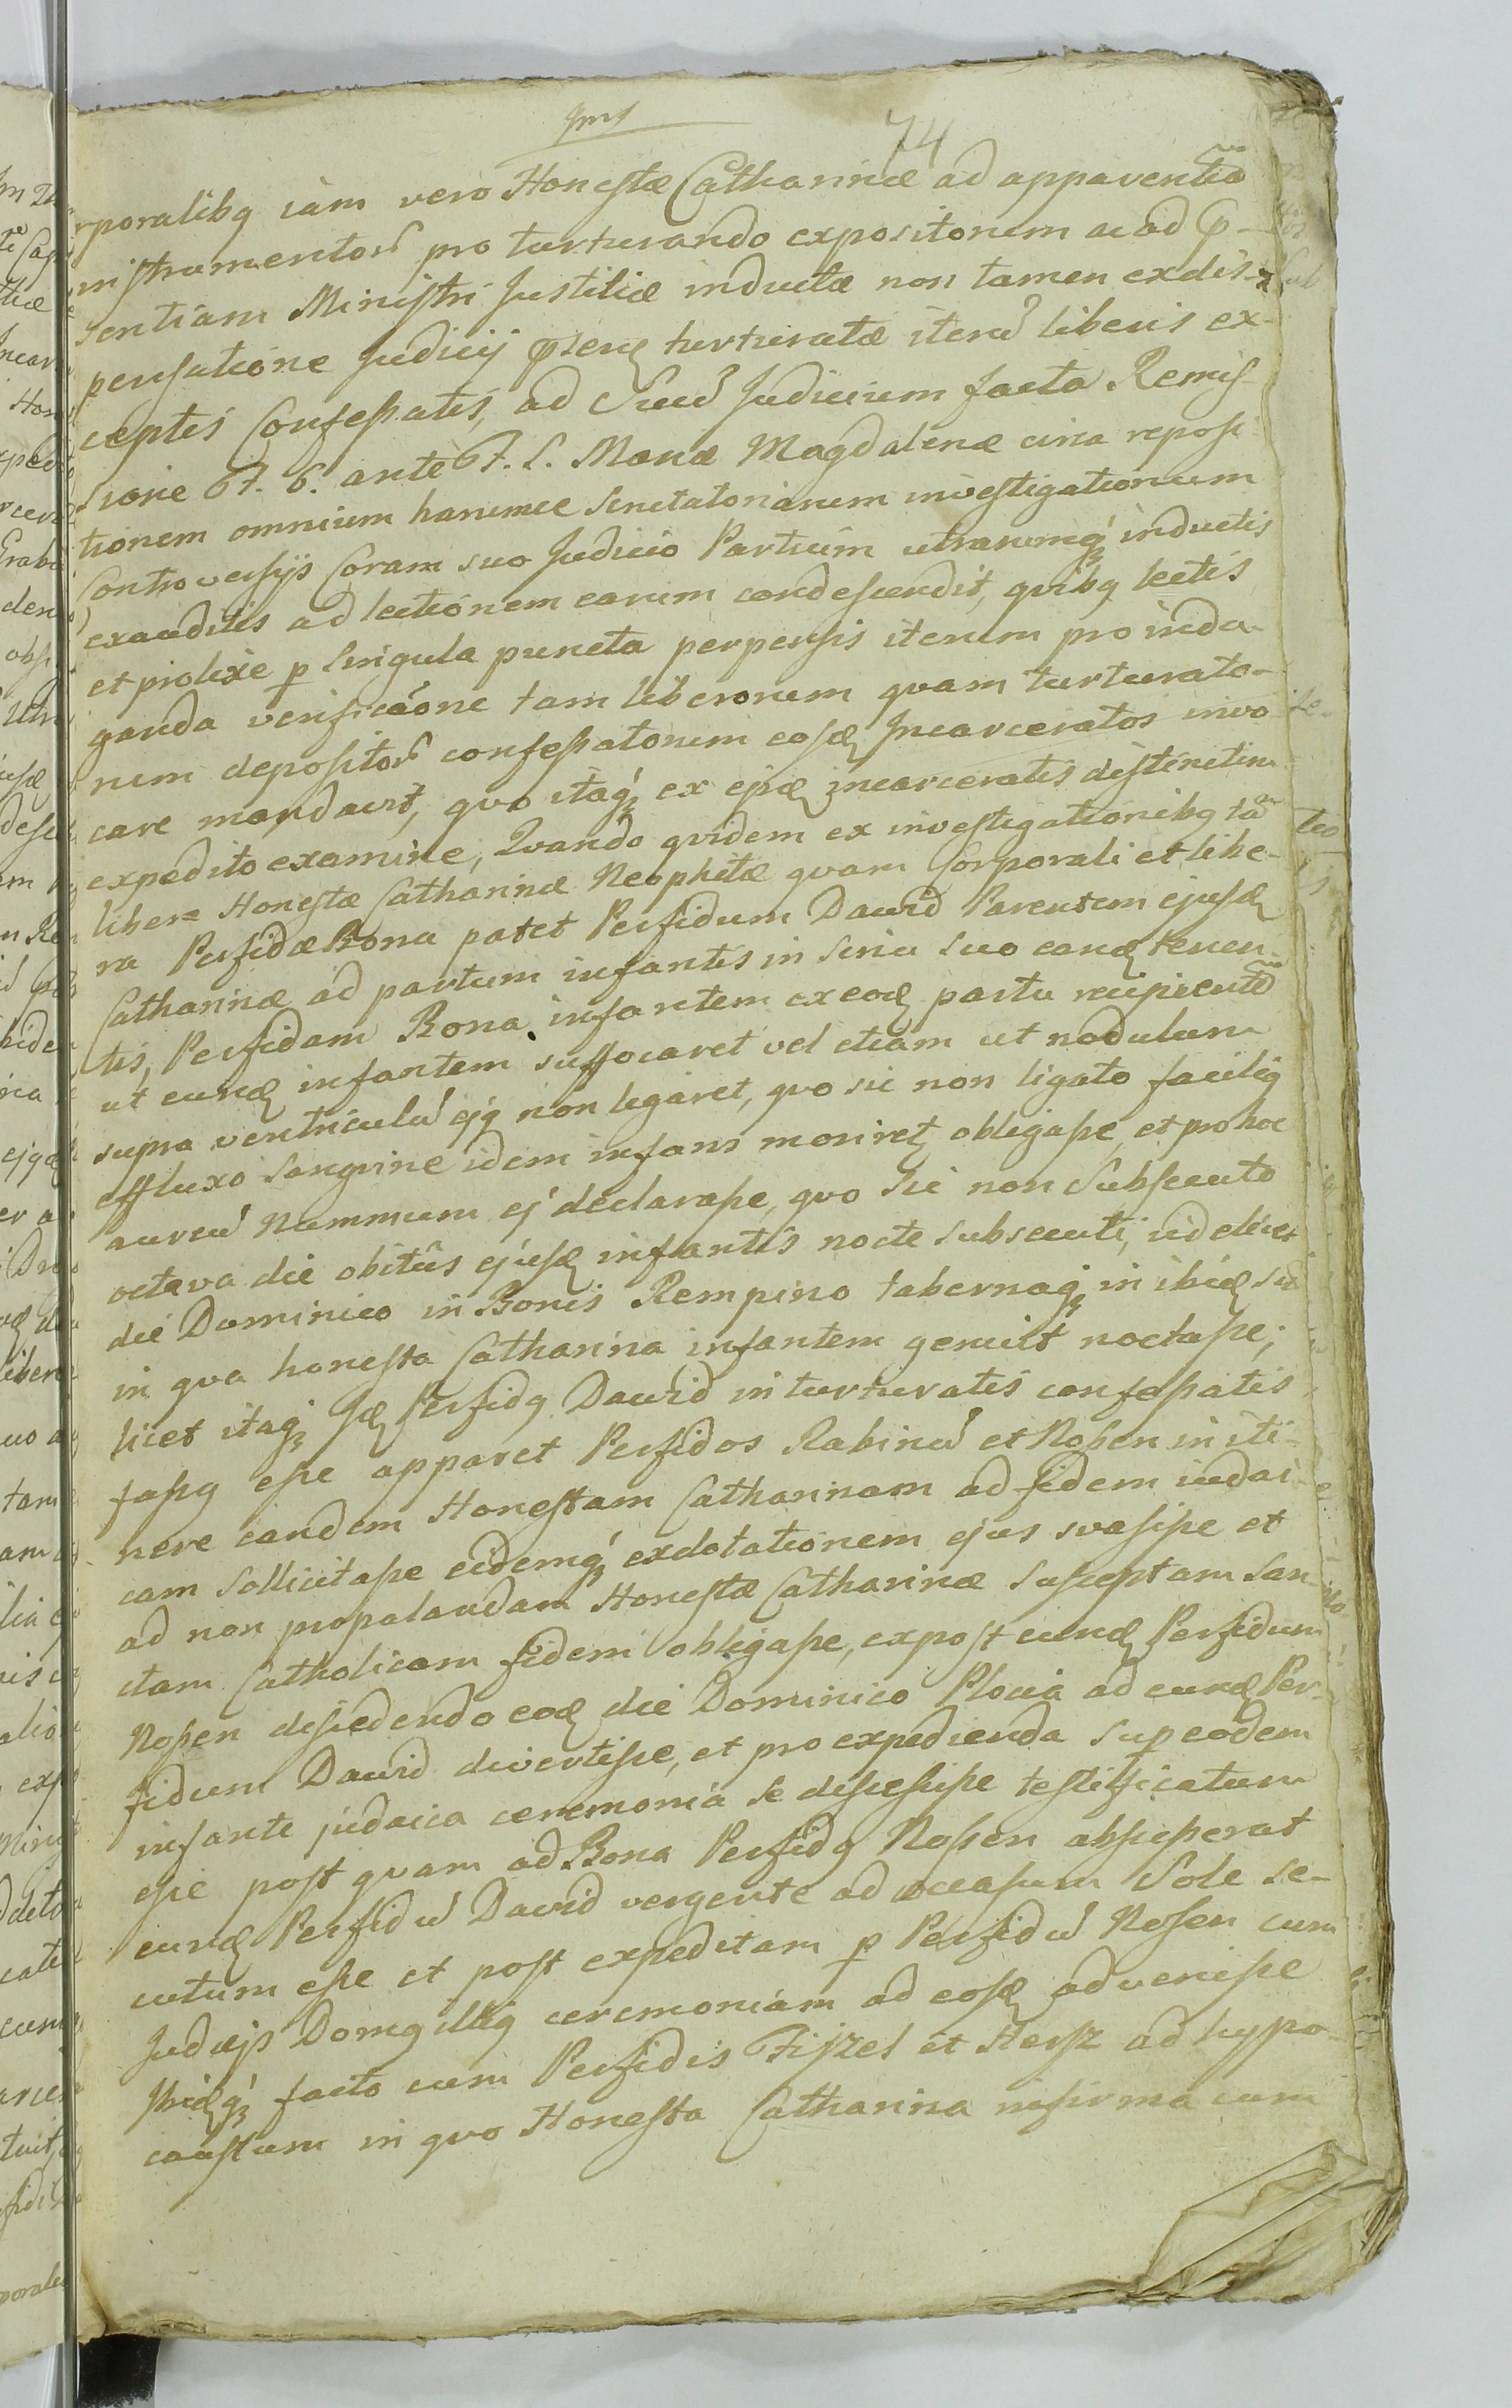 74
rporalibq iam vero Honestæ Catharinæ ad apparentiã
nstrumentorũ pro turturando expositorum ac ad p-
sentiam Ministri Justitiæ inductæ non tamen exdis-
pensatione Judicij turturatæ iterũ liberis ex-
ceptis Confessatis, ad Suũ Judicium facta Remis-
sione F. 6. ante F. S. Mariæ Magdalenæ circa reposi-
tionem omnium harumce Scrutatoriarum investigationum
Controversijs Coram suo Judicio Partium utrarumq́ inductis
exauditis ad lectionem earum condescendit, quibq lectis
et prolixe p Singula puncta perpensis iterum pro inda-
ganda verificãone tam liberorum quam turturato-
rum depositorũ confessatorum eosd Incarceratos invo
care mandavit, quo itaq́ ex ejsd incarceratis distinctim
expedito examine, Quando quidem ex investigationibq tã
libera Honestæ Catharinæ Neophitæ quam Corporali et libe-
ra Perfidæ Bona patet Perfidum Dawid Parentem ejusd
Catharinæ ad partum infantis in sinu suo eand tenen-
tis, Perfidam Bona infantem ex eod partu recipientẽ
ut eund infantem suffocaret vel etiam ut nodulum
supra ventriculũ ejq non ligaret, quo sic non ligato facilig
effluxo Sanguine idem infans moriret obligasse, et pro hoc
aureũ Nummum ej declarasse, quo Sic non Subsecuto
octava die obitûs ejusd infantis nocte subsecuti, videlicet
die Dominico in Bonis Rempino tabernaq́ in ibid
in qua honesta Catharina infantem genuit noctasse;
licet itaq́ Id Perfidq Dawid in turturatis confessatis
fassq esse apparet Perfidos Rabinũ et Nosen in iti-
nere eandem Honestam Catharinam ad fidem iudai-
cam Sollicitasse eidemq́ exdotationem ejus svasisse et
ad non propalandam Honestæ Catharinæ Susceptam San-
ctam Catholicam fidem obligasse, expost eund Perfidum
Nosen discedendo eod die Dominico Plocia ad eund Per-
fidum Dawid divertisse, et pro expedienda sup eodem
infante judaica ceremonia se discessisse testificatum
esse post quam ad Bona Perfidq Nosen abscesserat
eund Perfidũ Dawid vergente ad occasum Sole se-
cutum esse et post expeditam p Perfidũ Nosen cum
Judæjs Domq illiq ceremoniam ad eosd advenisse
ibidq́ facto cum Perfidis Fijzel et Hersz ad hypo-
caustum in quo Honesta Catharina infirma cum